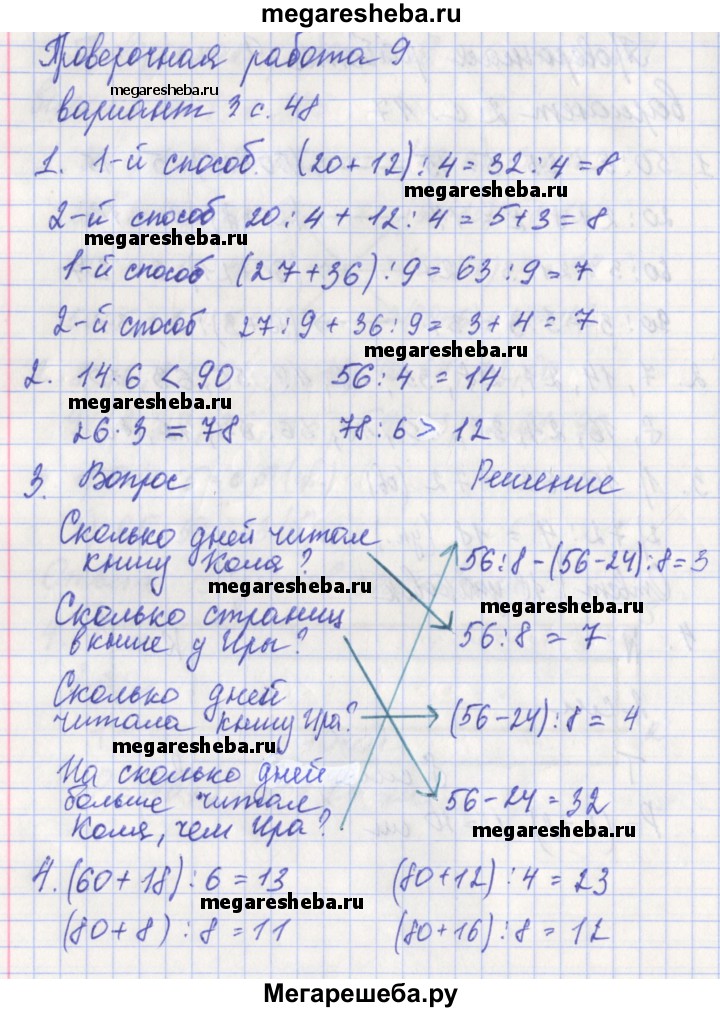 megaresheba.ru
Проверочная работа 9
megaresheba.ru
вариант 3 с. 48
1. 1-й способ. (20+12):4=32:4=8
megaresheba.ru
2-й способ 20:4+12:4=5+3=8
megaresheba.ru
1-й способ (27+36):9=63:9=7
2-й способ 27:9+36:9=3+4=7
megaresheba.ru
2. 14·6<90 56:4=14
megaresheba.ru
26·3=78 78:6>12
3. Вопрос Решение
Сколько дней читал
книгу Коля? 56:8-(56-24):8=3
megaresheba.ru
Сколько страниц megaresheba.ru
в книге у Иры? 56:8=7
Сколько дней
читала книгу Ира? (56-24):8=4
megaresheba.ru
На сколько дней
больше читал 56-24=32
Коля, чем Ира? megaresheba.ru
4. (60+18):6=13 (80+12):4=23
megaresheba.ru
(80+8):8=11 (80+16):8=12
Мегарешеба.ру